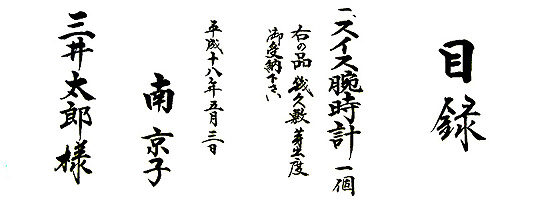 目録
一、スイス腕時計 一個
右の品 幾久敷 芽出度
御受納下さい
平成十八年五月三日
南 京子
三井太郎様